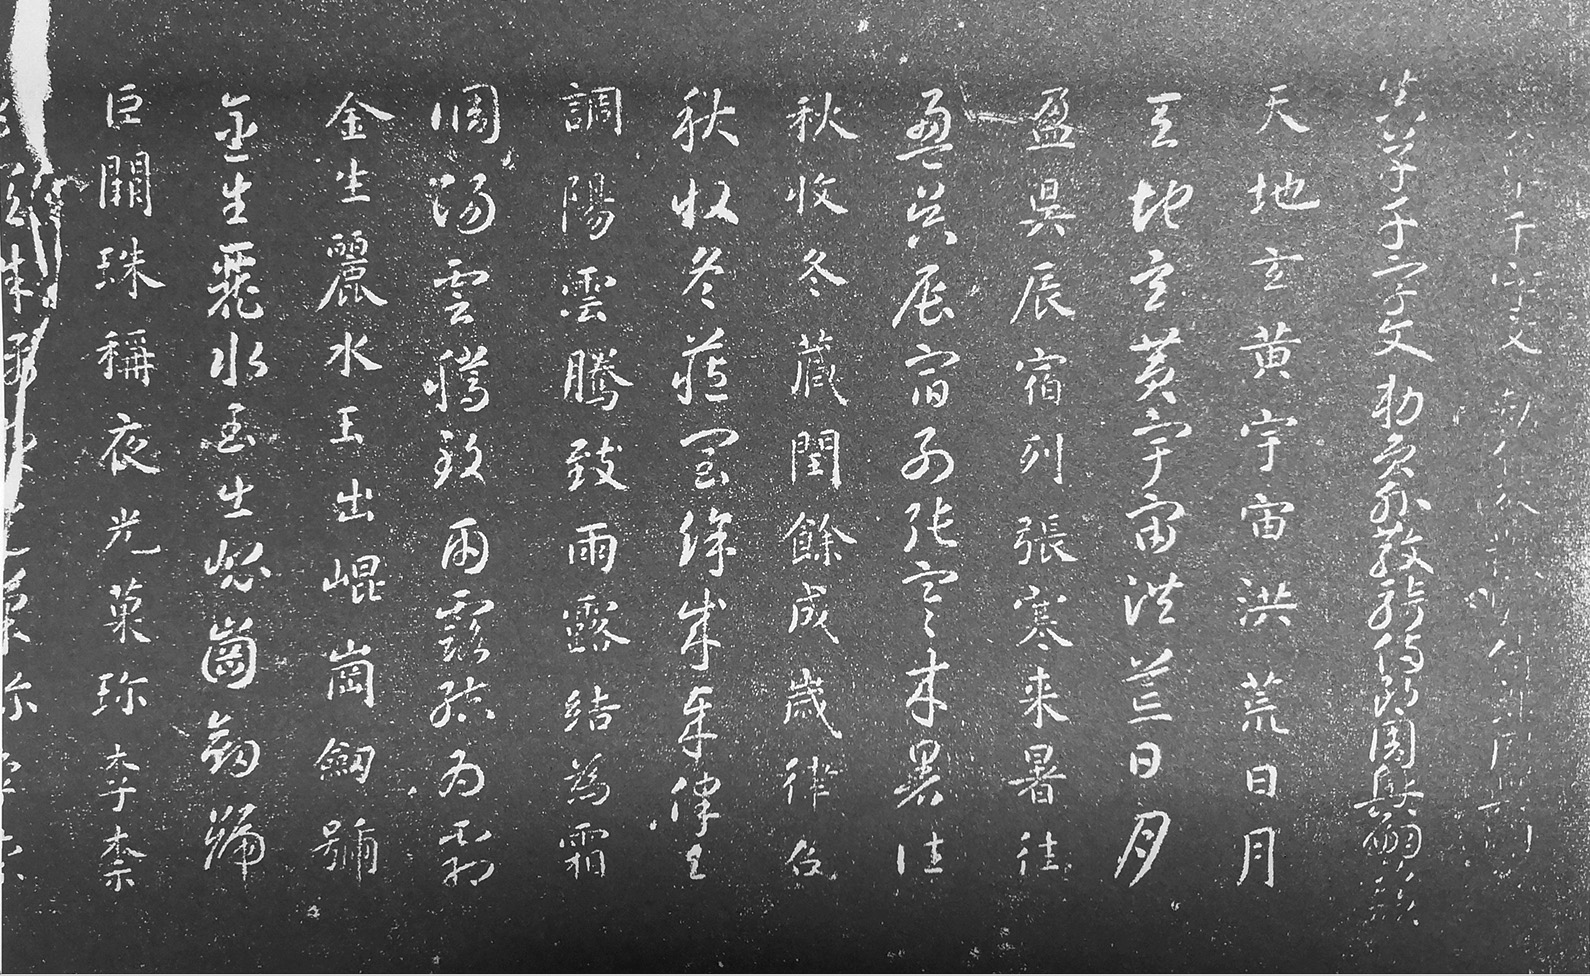 千字文
真草千字文勅員外散騎侍郎周興嗣次韻
天地玄黄宇宙洪荒日月
天地玄黄宇宙洪荒日月
盈昃辰宿列張寒来暑往
盈昃辰宿列張寒来暑往
秋收冬蔵閏餘成歲律召
秋收冬蔵閏餘成歲律召
調陽雲騰致雨露結為霜
調陽雲騰致雨露結為霜
金生麗水玉出崐崗劒號
金生麗水玉出崐崗劒號
巨闕珠稱夜光菓珍李柰
闕珠稱夜光菓珍李柰